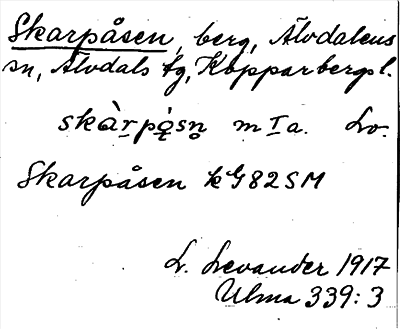 Skarpåsen, berg, Älvdalens
sn, Älvdals tg, Kopparbergs l.
skàrpå̀sn̥ m I a. Lv.
Skarpåsen kG82SM
L. Levander 1917
Ulma 339:3